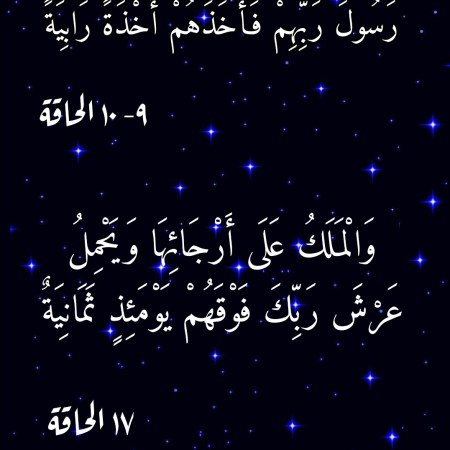 رَسُولَ رَبِّهِمْ فَأَخَذَهُمْ أَخْذَةً رَابِيَةً
٩- ١٠ الحاقة
وَالْمَلَكُ عَلَى أَرْجَائِهَا وَيَحْمِلُ
عَرْشَ رَبِّكَ فَوْقَهُمْ يَوْمَئِذٍ ثَمَانِيَةٌ
١٧ الحاقة